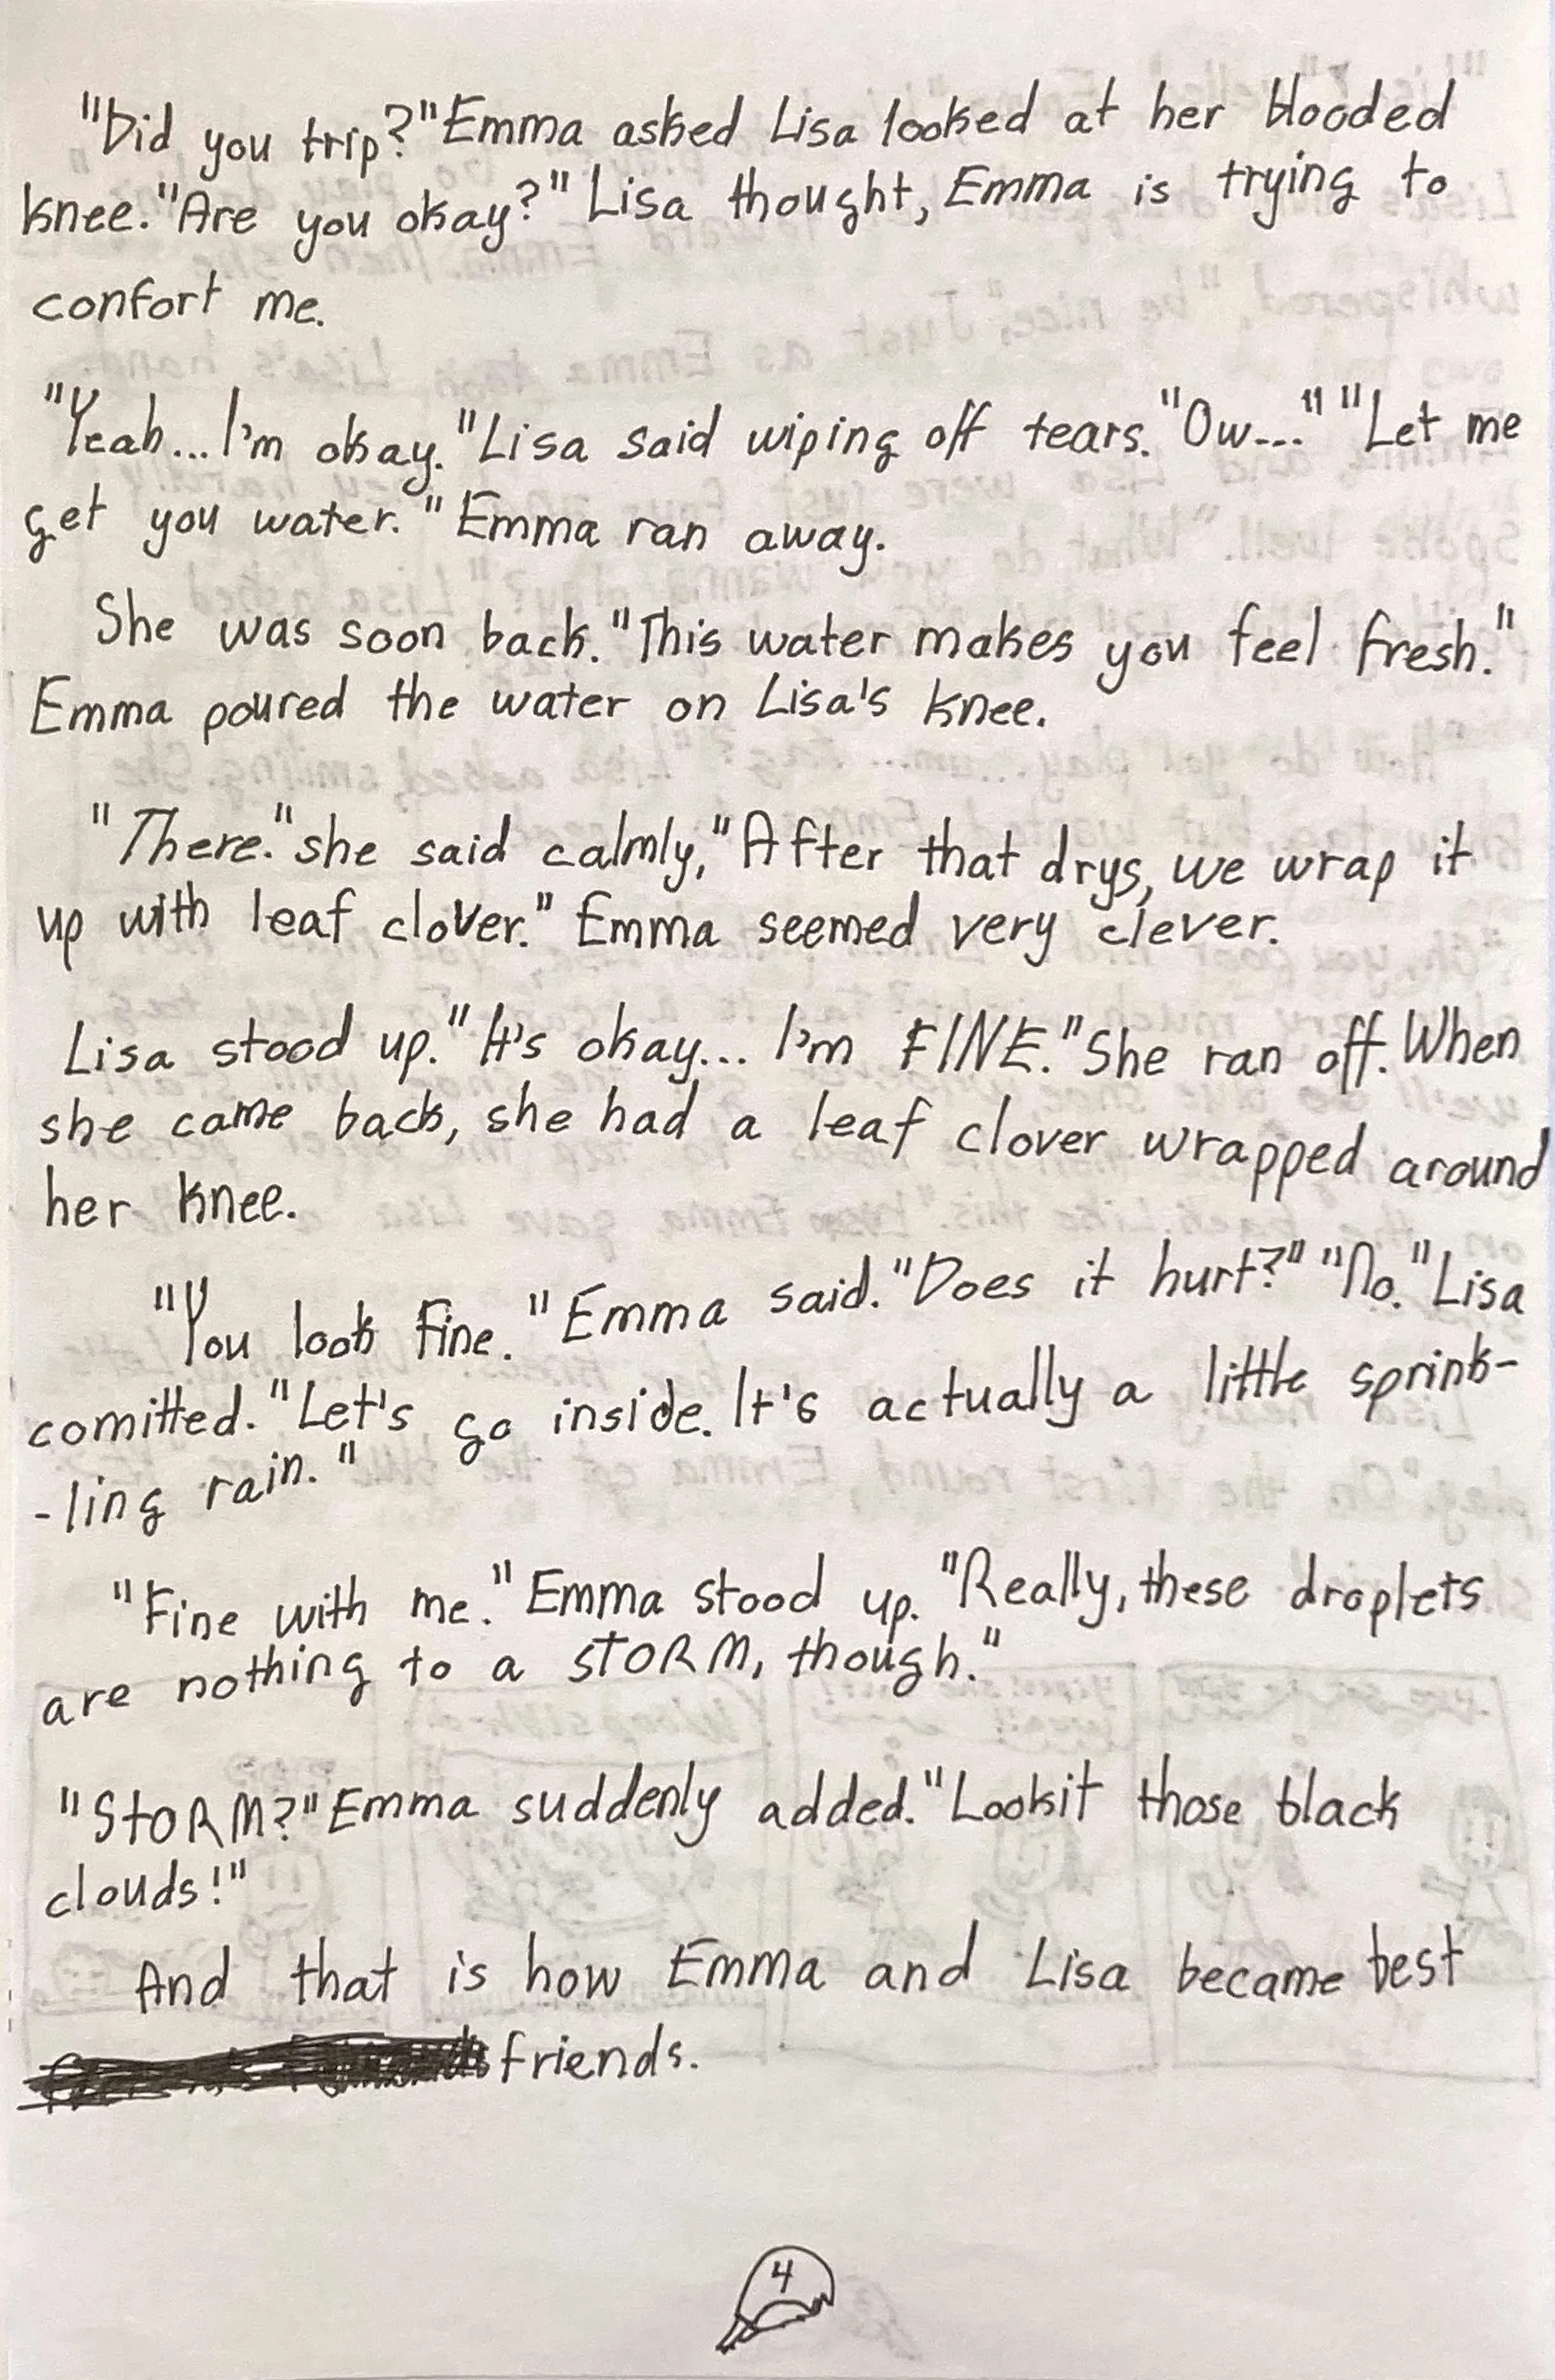 "Did you trip?" Emma asked Lisa looked at her blooded
knee. "Are you okay?" Lisa thought, Emma is trying to
confort me.
"Yeah... I'm okay." Lisa said wiping off tears. "Ow..." "Let me
get you water." Emma ran away.
She was soon back. "This water makes you feel fresh."
Emma poured the water on Lisa's knee.
"There." she said calmly, "After that drys, we wrap it
up with leaf clover." Emma seemed very clever.
Lisa stood up. "It's okay... I'm FINE." She ran off. When
she came back, she had a leaf clover wrapped around
her knee.
"You look fine." Emma said. "Does it hurt?" "No." Lisa
comitted. "Let's go inside. It's actually a little sprink-
-ling rain."
"Fine with me." Emma stood up. "Really, these droplets
are nothing to a STORM, though."
"StORM?" Emma suddenly added. "Lookit those black
clouds!"
And that is how Emma and Lisa became best
friends.
4